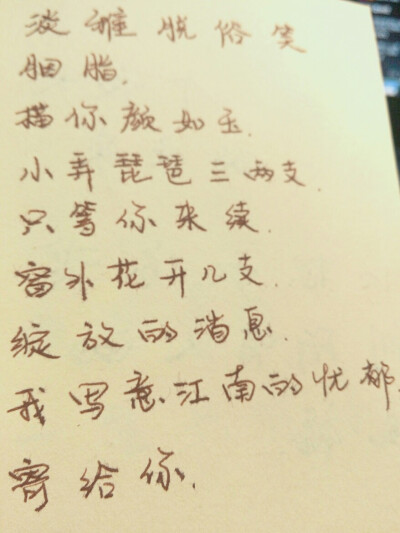 淡雅脱俗笑
胭脂.
描你颜如玉.
小弄琵琶三两支.
只等你来续.
窗外花开几支.
绽放的消息.
我写意江南的忧郁.
寄给你.